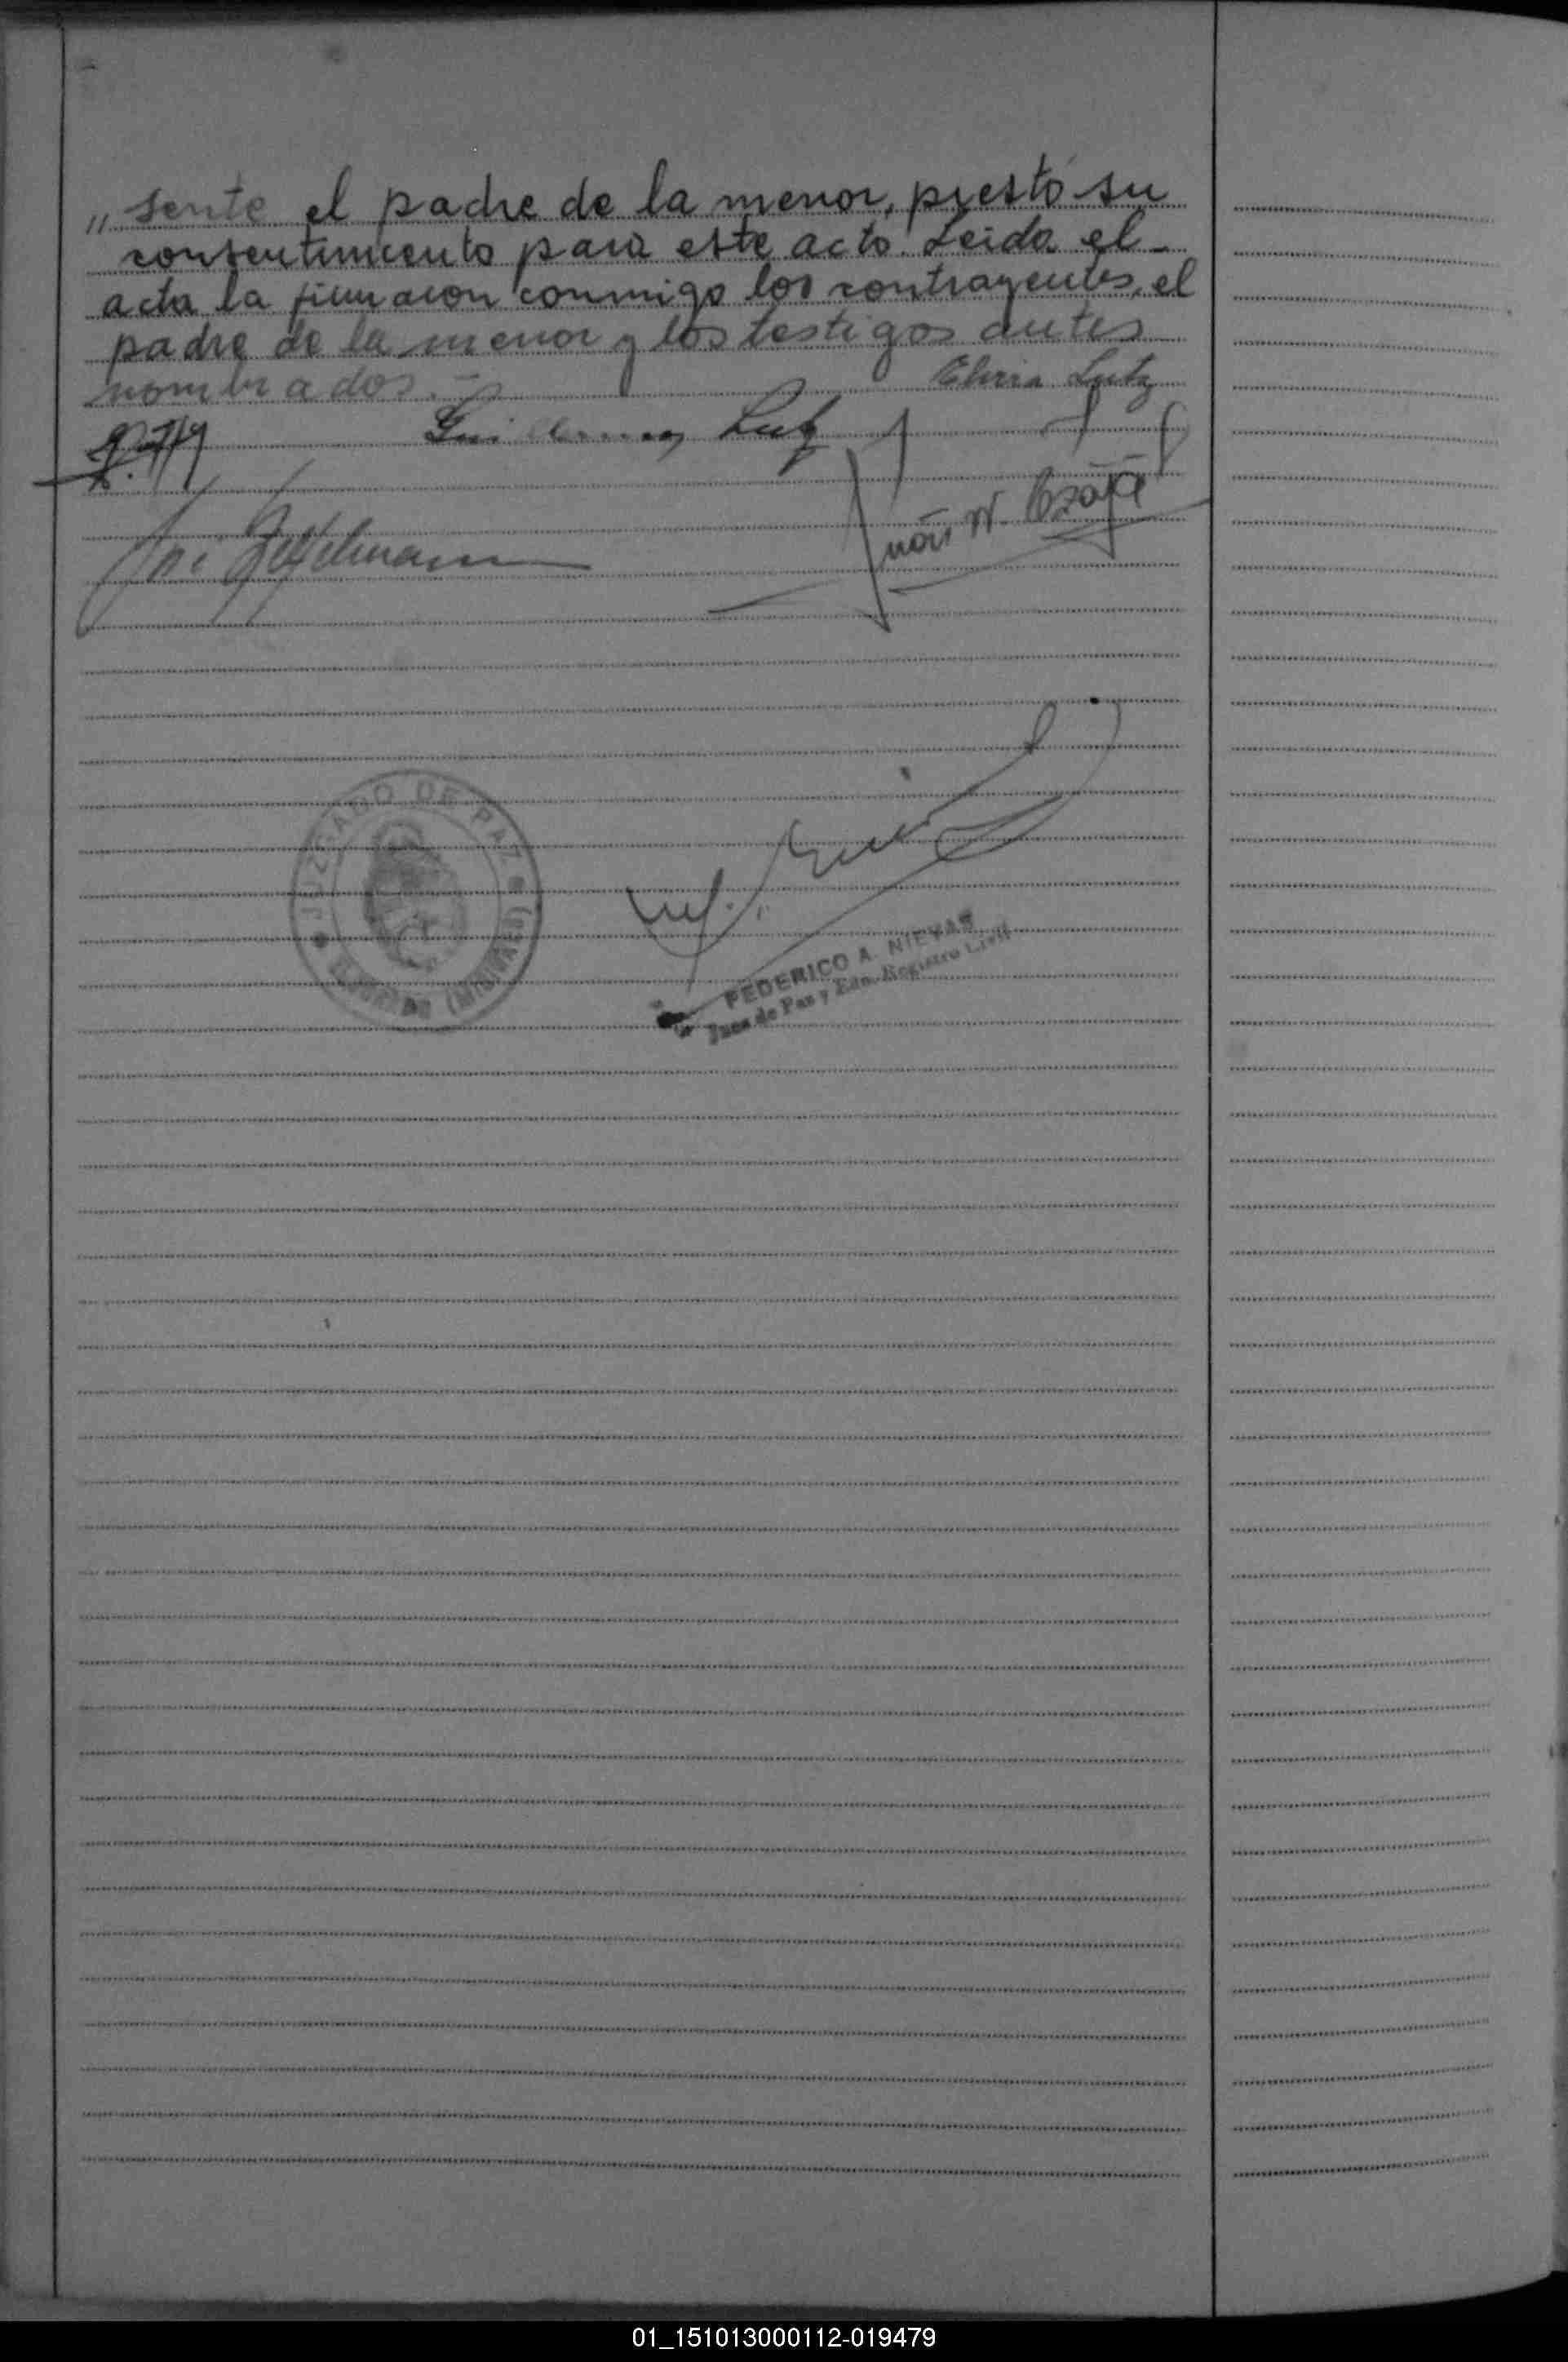 „ sente el padre de la menor, prestó su
consentimiento para este acto. Leida el
acta la firmaron conmigo los contrayentes, el
padre de la menor y los testigos antes
nombrados.-
Elvira Lutz
Guillermo Lutz
Juan W.
José
JUZGADO DE PAZ
ELDORADO (MISIONES)
FEDERICO A. NIEVAS
Juez de Paz y Edo. Registro Civil
01_151013000112-019479